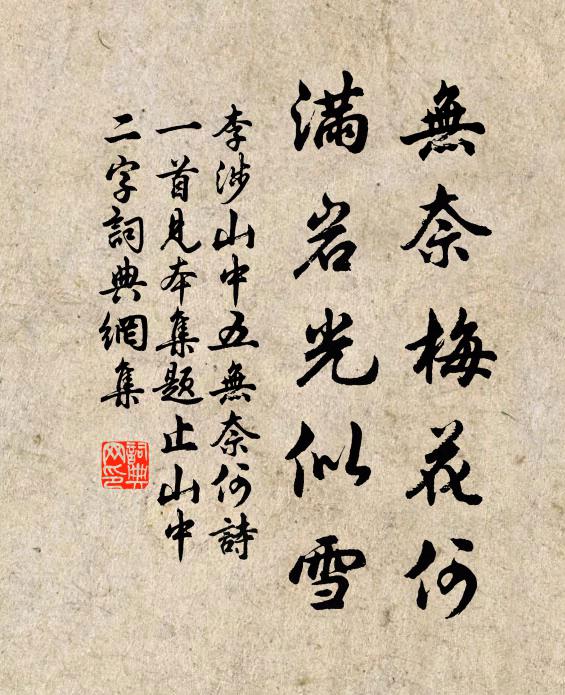 無奈梅花何
滿岩光似雪
李涉山中五無奈何詩
一首見本集題止山中
二字詞典網集
詞典網印